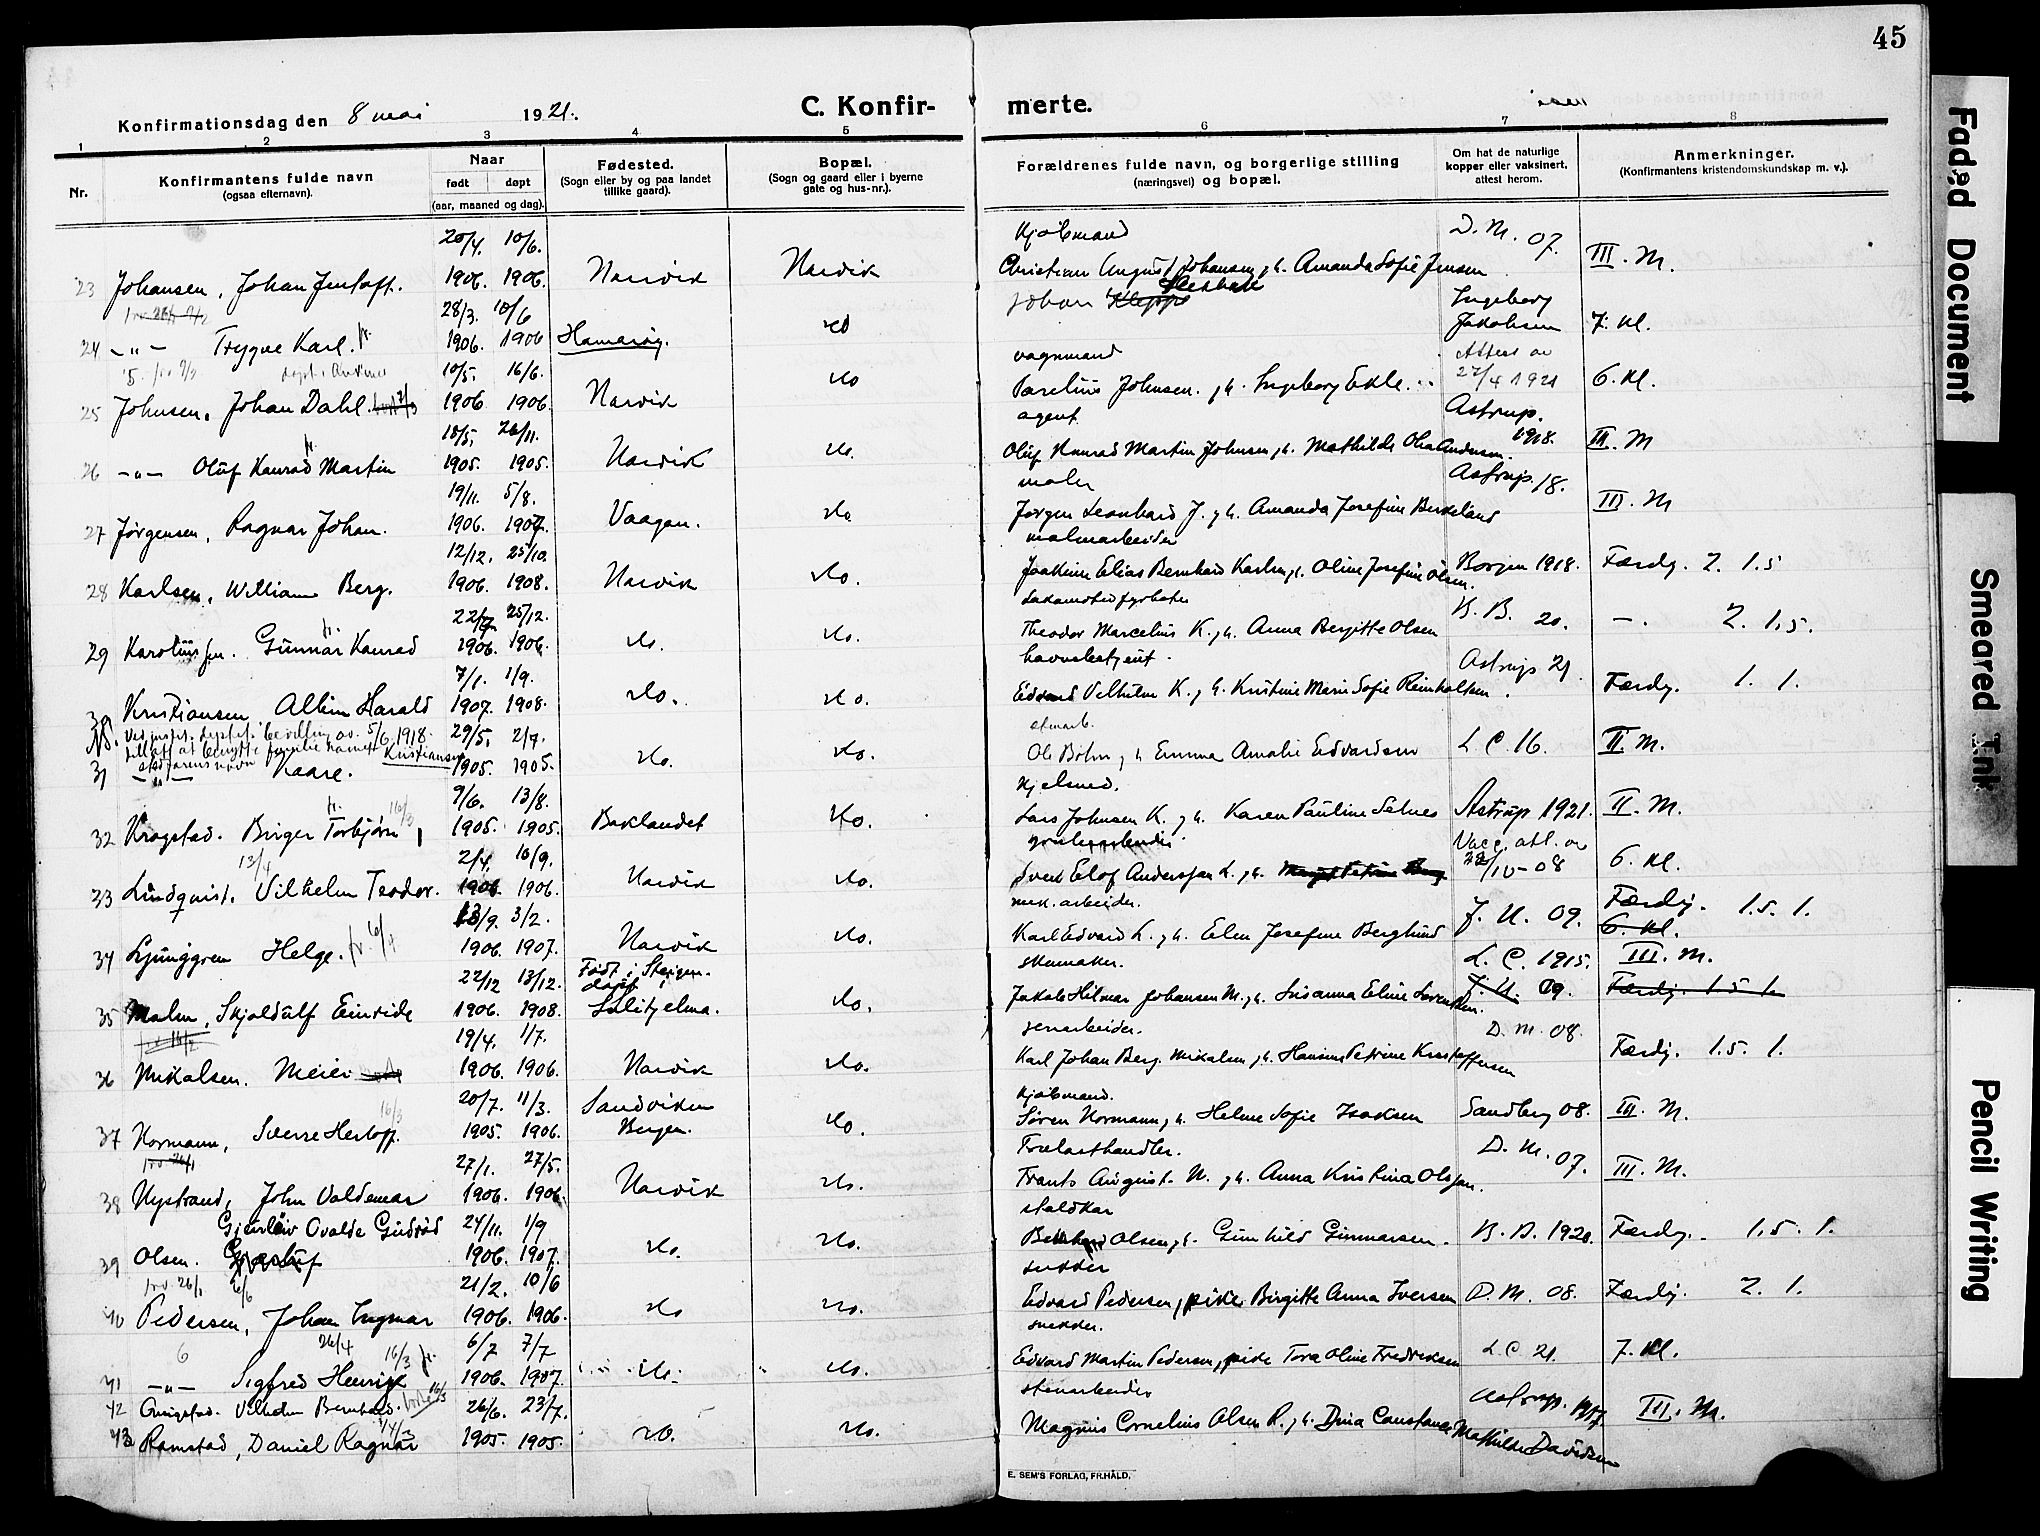 45
Konfirmationsdag den 8 mai 1921.
C. Konfir-
merte.
1 2 3 4 5 6 7 8
Nr.
Konfirmantens fulde navn
(ogsaa efternavn).
Naar
født døpt
(aar, maaned og dag).
Fødested.
(Sogn eller by og paa landet
tillike gaard).
Bopæl.
(Sogn og gaard eller i byerne
gate og hus-nr.).
Forældrenes fulde navn, og borgerlige stilling
(næringsvei) og bopæl.
Om hat de naturlige
kopper eller vaksinert,
attest herom.
Anmerkninger.
(Konfirmantens kristendomskundskap m. v.).
20/4. 10/6. Kjøbmand D. M. 07.
23 Johansen, Johan Jentoft. 1906. 1906. Narvik Narvik Christian August Johansen, h. Amanda Sofie Jensen III. M.
28/3. 10/6 Johan Ingeborg
24 -"- Trygve Karl. 1906. 1906 Hamarøy. do Jakobsen 7. kl.
10/5. 16/6. vognmand Attest av
25 Johnsen, Johan Dahl. 1906 1906. Narvik do Parelius Johnsen. h. Ingeborg 27/4 1921 6. kl.
18/5. 26/11. agent Astrup. 1918.
26 -"- Oluf Konrad Martin 1905. 1905. Narvik do. Oluf Konrad Martin Johnsen, h. Mathilde Andersen. III. M
19/11. 5/8. maler Astrup. 18.
27 Jørgensen, Ragnar Johan. 1906. 1907. Vaagan. do. Jørgen Leonhard J. h. Amanda Josefine Berkeland III. M
12/12. 25/10. malmarbeider
28 Karlsen, William Berg. 1906. 1908. Narvik do. Joakim Elias Bernhard Karlsen, h. Oline Josefine Olsen. Borgen 1918. Færdig. 2. 1.5
22/7. 25/12. Lokomotivfyrbøter
29 Karoliussen. Gunnar Konrad 1906. 1906. do. do. Theodor Marcelius K. h. Anna Bergitte Olsen K. B. 20. -. 2. 1.5.
7/1. 1/9. havnebetjent. Astrup 21.
30 Kristiansen Albin Harald 1907. 1908. do. do. Edvard Vilhelm K. h. Kristine Marie Sofie Reinholtsen. Færdig. 1. 1.
5/6 1918. 29/5. 2/7.
31 -"- Kaare. Kristiansen 1905. 1905. do. do. Ole Bøhn, h. Emma Amalie Edvardsen L. C. 16. II. M.
9/6. 13/8. Kjelsmed.
32 Krogstad. Birger Torbjørn 1905. 1905. Baklandet do. Lars Johnsen K. h. Karen Pauline Selnes Astrup 1921. II. M.
13/4 2/4. 10/9. Vacc. att. av
33 Lindquist. Vilhelm Teodor. 1906. 1906. Narvik do. Sven Elof Andersson L. h. /10-08 6. kl.
13/9. 3/2. mek. arbeider. Færdig. 1.5. 1.
34 Ljunggren Helge. 1906. 1907. Narvik do. Karl Edvard L. h. Elen Josefine Berglund J. N. 09. 6. kl.
22/12 13/12. Født i Steigen. skomaker. L. C. 1915. III. M.
35 Malm, Skjoldulf Einride 1906. 1908. døpt i Sulitjelma. do. Jakob Hilmar Johansen M. h. Susanna Eline Sørensen. J. N. 09. Færdig. 1 5 1.
19/4. 1/7. jernarbeider. D. M. 08.
36 Mikalsen. Meier 1906. 1906. Narvik do. Karl Johan Berg. Mikalsen, h. Hansine Petrine Kristoffersen Færdig. 1.5. 1.
20/7. 11/3. Sandviken Kjøbmand.
37 Normann, Sverre Herlof. 1905. 1906. Bergen. do. Søren Normann, h. Helene Sofie Isaksen Sandberg 08. III. M.
27/1. 27/5. Trælasthandler. D. M. 07.
38 Nystrand, John Valdemar 1906. 1906. Narvik do. Frants August N. h. Anna Kristina Olsson. III. M.
Ovalde Gudrød 24/11. 1/9 staldkar
39 Olsen. 1906. 1907. do. do. Olsen, h. Gunhild Gunnarsen. K. B. 1920. Færdig. 1.5. 1.
21/2. 10/6 snekker
40 Pedersen, Johan Ingmar 1906. 1906. do do. Edvard Pedersen, pike Birgitte Anna Iversen D. M. 08. Færdig. 2. 1.
26/4 16/3 6/2 7/7 snekker.
41 -"- Sigfred Henrik 1906. 1907. do. do. Edvard Martin Pedersen, pike Tora Oline Fredriksen L. C. 21. 7. kl.
42 Vilhelm Bernhard. 26/6. 23/7. stenarbeider Astrup.
43 Ramstad, Daniel Ragnar 1905. 1905. do. do. Magnus Cornelius Olsen R. h. Dina Constance Mathilde Davidsen III. M.
E. SEM'S FORLAG, FR.HALD.
Faded Document
Smeared Ink
Pencil Writing